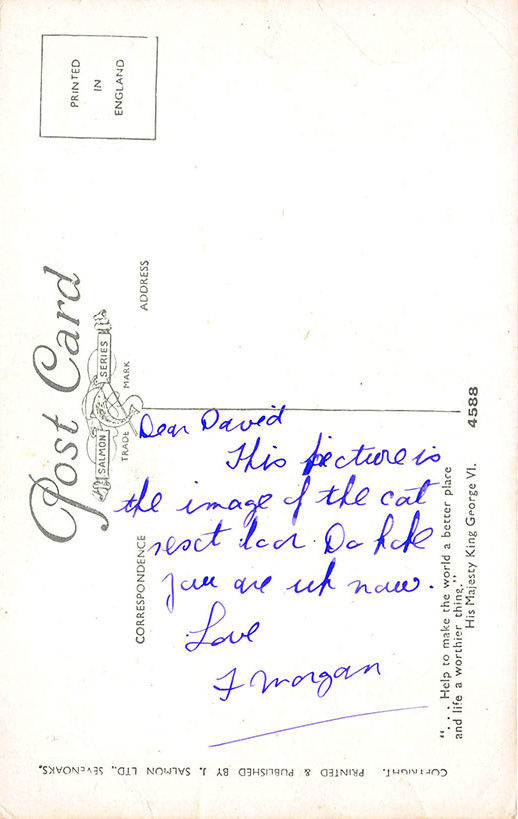 PRINTED
IN
ENGLAND
Post Card
SALMON SERIES
TRADE MARK
CORRESPONDENCE
ADDRESS
Dear David
This picture is
the image of the cat
next door. Do hope
you are up now.
Love
F Morgan
"... Help to make the world a better place
and life a worthier thing."
His Majesty King George VI.
4588
COPYRIGHT. PRINTED & PUBLISHED BY J. SALMON LTD., SEVENOAKS.